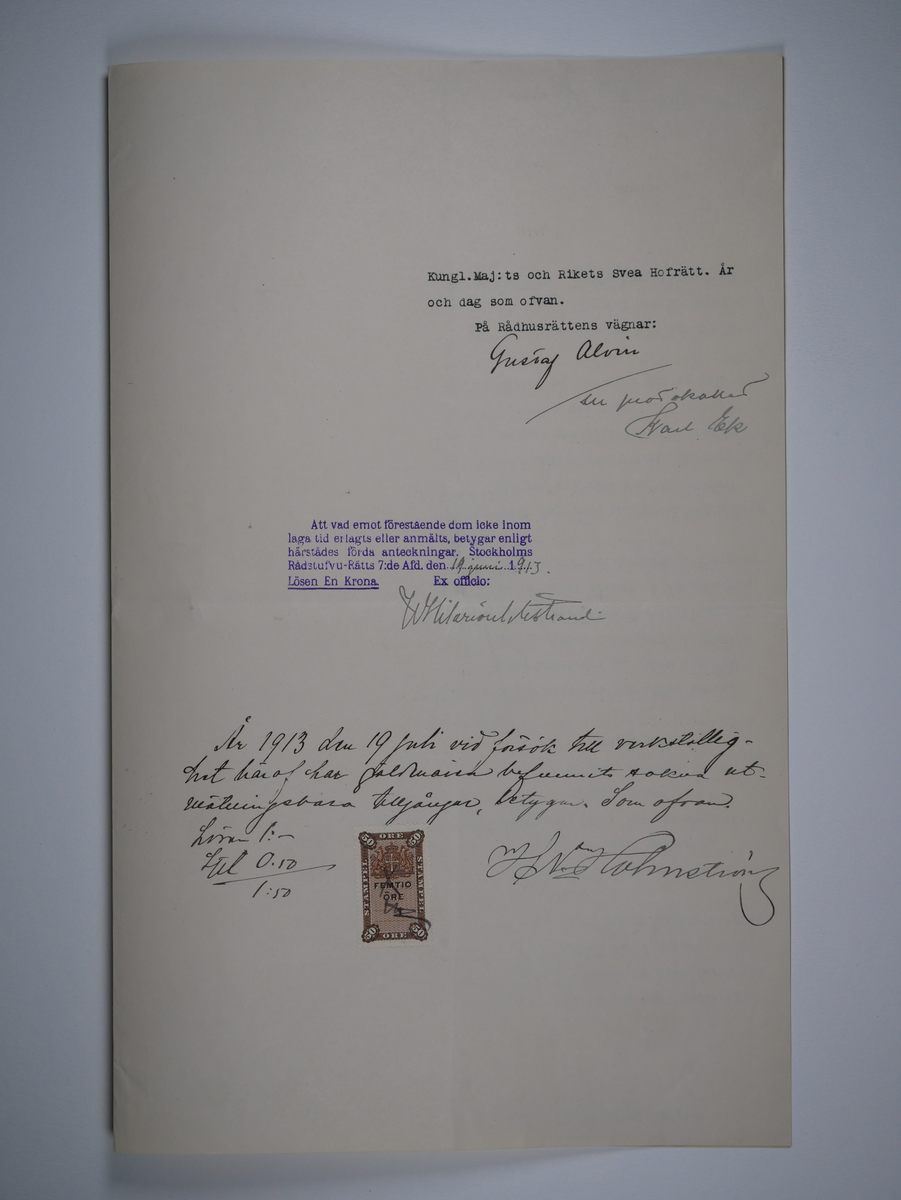 Kungl.Maj:ts och Rikets Svea Hofrätt. År
och dag som ofvan.
På Rådhusrättens vägnar:
Gustaf Alvin
Karl Ek
Att vad emot förestående dom icke inom
laga tid erlagts eller anmälts, betygar enligt
härstädes förda anteckningar. Stockholms
Rådstufvu-Rätts 7:de Afd. den 19 juni 1913.
Lösen En Krona. Ex officio:
År 1913 den 19 juli vid försök till verkställig-
het häraf har gäldenären befunnits sakna ut-
mätningsbara tillgångar, betygar. Som ofvan.
Lösen 1:-
Stpl 0.50
1:50
Holmström
50 ÖRE 50
STÄMPEL
FEMTIO
ÖRE
STÄMPEL
50 ÖRE 50